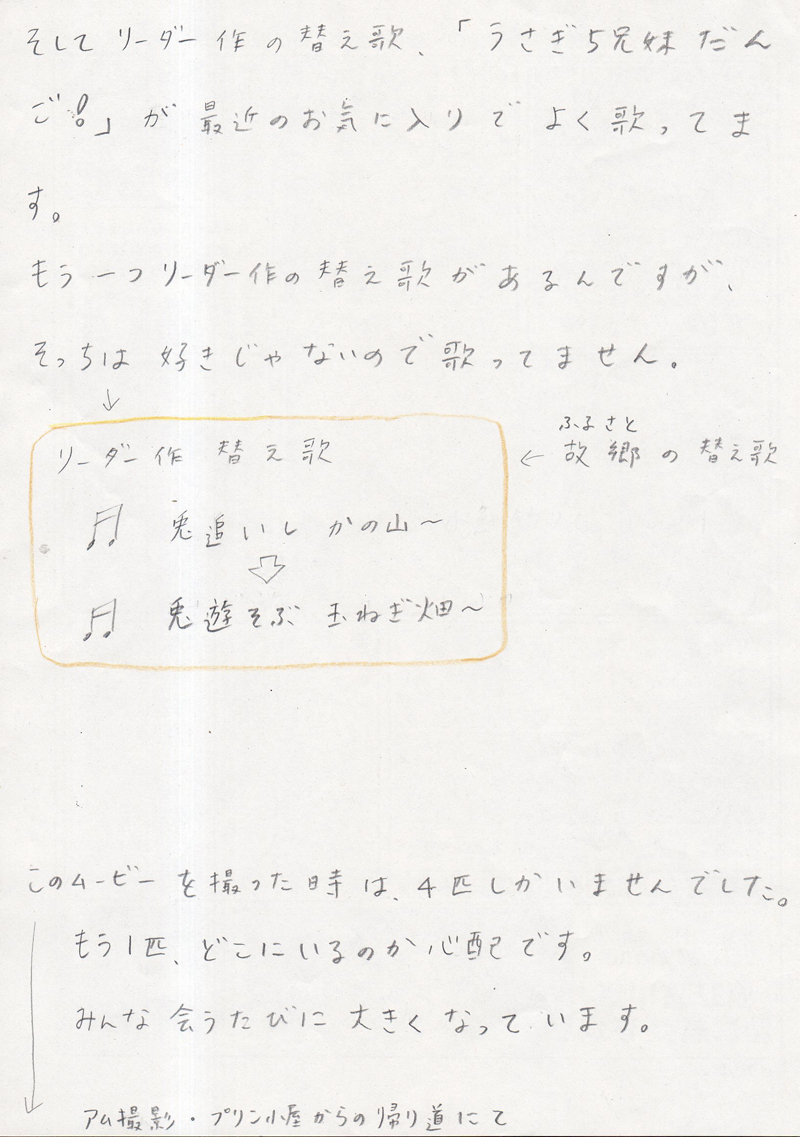 そしてリーダー作の替え歌、「うさぎ5兄妹だん
ご!」が最近のお気に入りでよく歌ってま
す。
もう一つリーダー作の替え歌があるんですが、
そっちは好きじゃないので歌ってません。
↓
リーダー作 替え歌
ふるさと
← 故郷の替え歌
♫ 兎追いし かの山〜
⇩
♫ 兎遊そぶ 玉ねぎ畑〜
このムービーを撮った時は、4匹しかいませんでした。
もう1匹、どこにいるのか心配です。
みんな会うたびに大きくなっています。
↓ アム撮影・プリン小屋からの帰り道にて